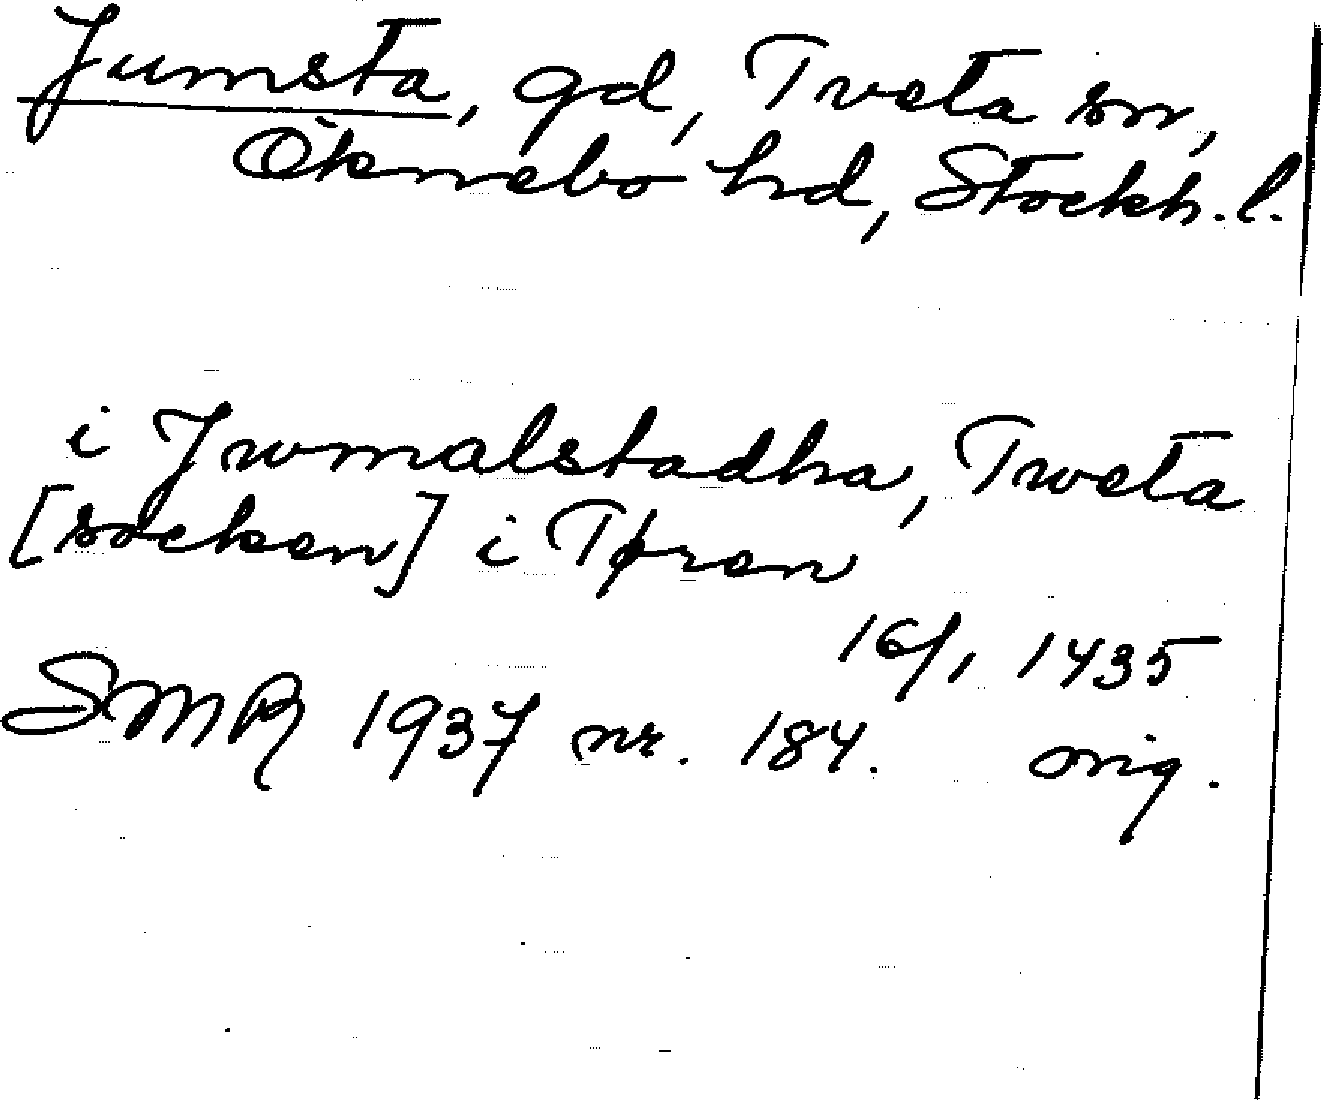 Jumsta, gd, Tveta sn,
Öknebo hd, Stockh. l.
i Jwmalstadha, Tweta
[socken] i Thøren
16/1 1435
SMR 1937 nr. 184. orig.